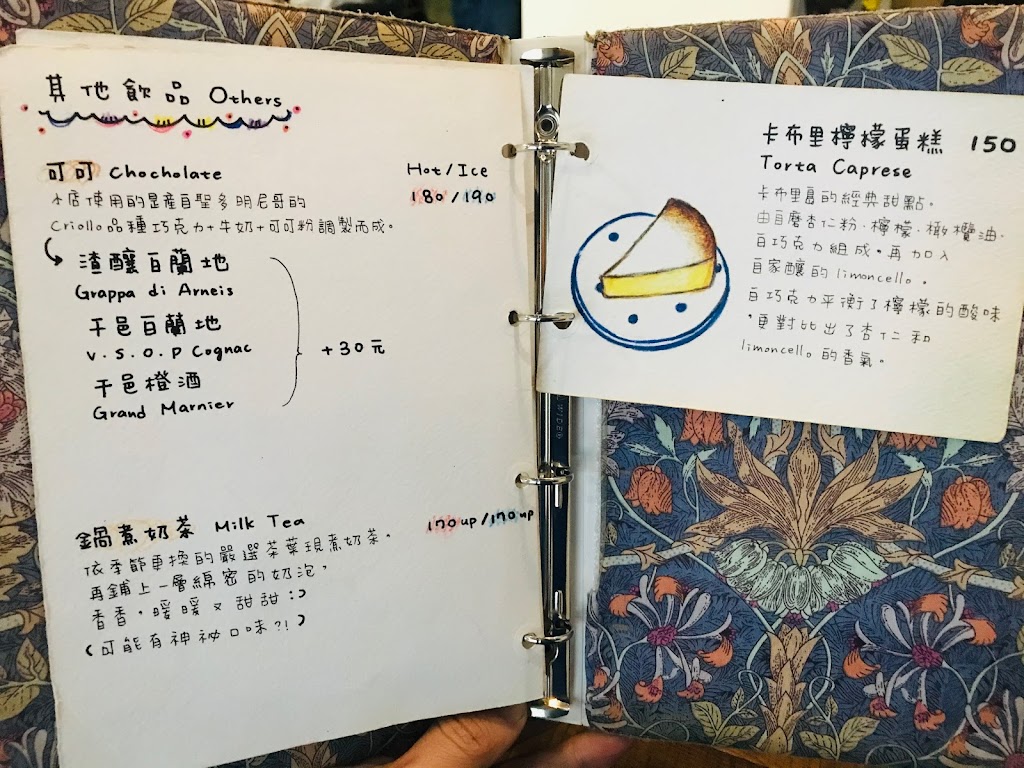 其他飲品 Others
可可 Chocholate Hot/Ice
本店使用的是產自聖多明尼哥的 180/190
Criollo品種巧克力+牛奶+可可粉調製而成。
渣釀白蘭地
Grappa di Arneis
干邑白蘭地
V.S.O.P Cognac +30元
干邑橙酒
Grand Marnier
鍋煮奶茶 Milk Tea 170up/170up
依季節更換的嚴選茶葉現煮奶茶。
再鋪上一層綿密的奶泡,
香香,暖暖又甜甜:)
(可能有神祕口味?!)
卡布里檸檬蛋糕 150
Torta Caprese
卡布里島的經典甜點。
由自磨杏仁粉.檸檬.橄欖油.
白巧克力組成。再加入
自家釀的limoncello。
白巧克力平衡了檸檬的酸味
,更對比出了杏仁和
limoncello的香氣。